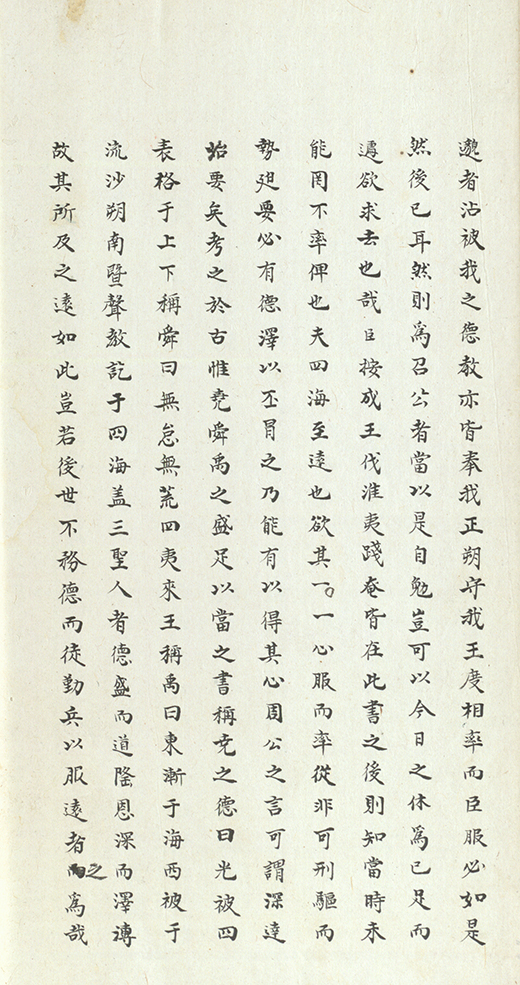 邈者沾被我之德教亦皆奉我正朔守我王度相率而臣服必如是
然後已耳然則爲召公者當以是自勉豈可以今日之休爲已足而
遽欲求去也哉臣按成王伐淮夷踐奄皆在此書之後則知當時未
能罔不率俾也夫四海至遠也欲其一一心服而率從非可刑驅而
勢廹要必有德澤以丕冒之乃能有以得其心周公之言可謂深達
治要矣考之於古惟堯舜禹之盛足以當之書稱尭之德曰光被四
表格于上下稱舜曰無怠無荒四夷來王稱禹曰東漸于海西被于
流沙朔南曁聲教訖于四海盖三聖人者德盛而道隆恩深而澤溥
故其所及之遠如此豈若後世不務德而徒勤兵以服遠者之爲哉